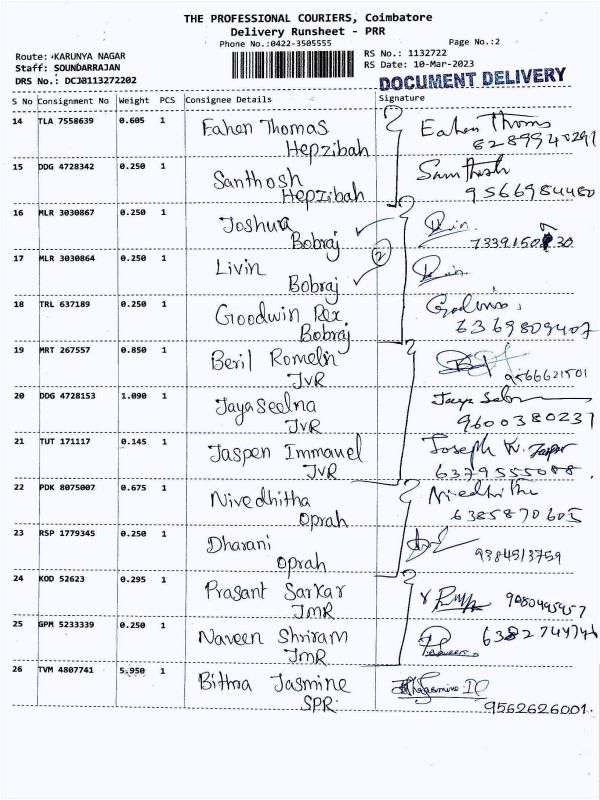 THE PROFESSIONAL COURIERS, Coimbatore
Delivery Runsheet - PRR
Phone No.:0422-3505555
Page No.:2
Route: KARUNYA NAGAR
RS No.: 1132722
Staff: SOUNDARRAJAN
RS Date: 10-Mar-2023
DRS No.: DCJB113272202
DOCUMENT DELIVERY
S No Consignment No Weight PCS Consignee Details Signature
14 TLA 7558639 0.605 1 Eahen Thomas Eahen Thoms
Hepzibah 8289940291
15 DDG 4728342 0.250 1 Santhosh Santhosh
Hepzibah 9566984480
16 MLR 3030867 0.250 1 Joshua
Bobraj
2
17 MLR 3030864 0.250 1 Livin
Bobraj
18 TRL 637189 0.250 1 Goodwin Rex
Bobraj 6369809407
19 MRT 267557 0.850 1 Beril Romeln
JVR 9566621501
20 DDG 4728153 1.090 1 Jayaseelna
JVR 9600380237
21 TUT 171117 0.145 1 Jaspen Immanuel Joseph
JVR 6379555088
22 PDK 8075007 0.675 1 Nivedhitha
Oprah 6385870605
23 RSP 1779345 0.250 1 Dharani
Oprah 9384513759
24 KOD 52623 0.295 1 Prasant Sarkar
JMR
25 GPM 5233339 0.250 1 Naveen Shriram
JMR
26 TVM 4807741 5.950 1 Bittna Jasmine
SPR. 9562626001.